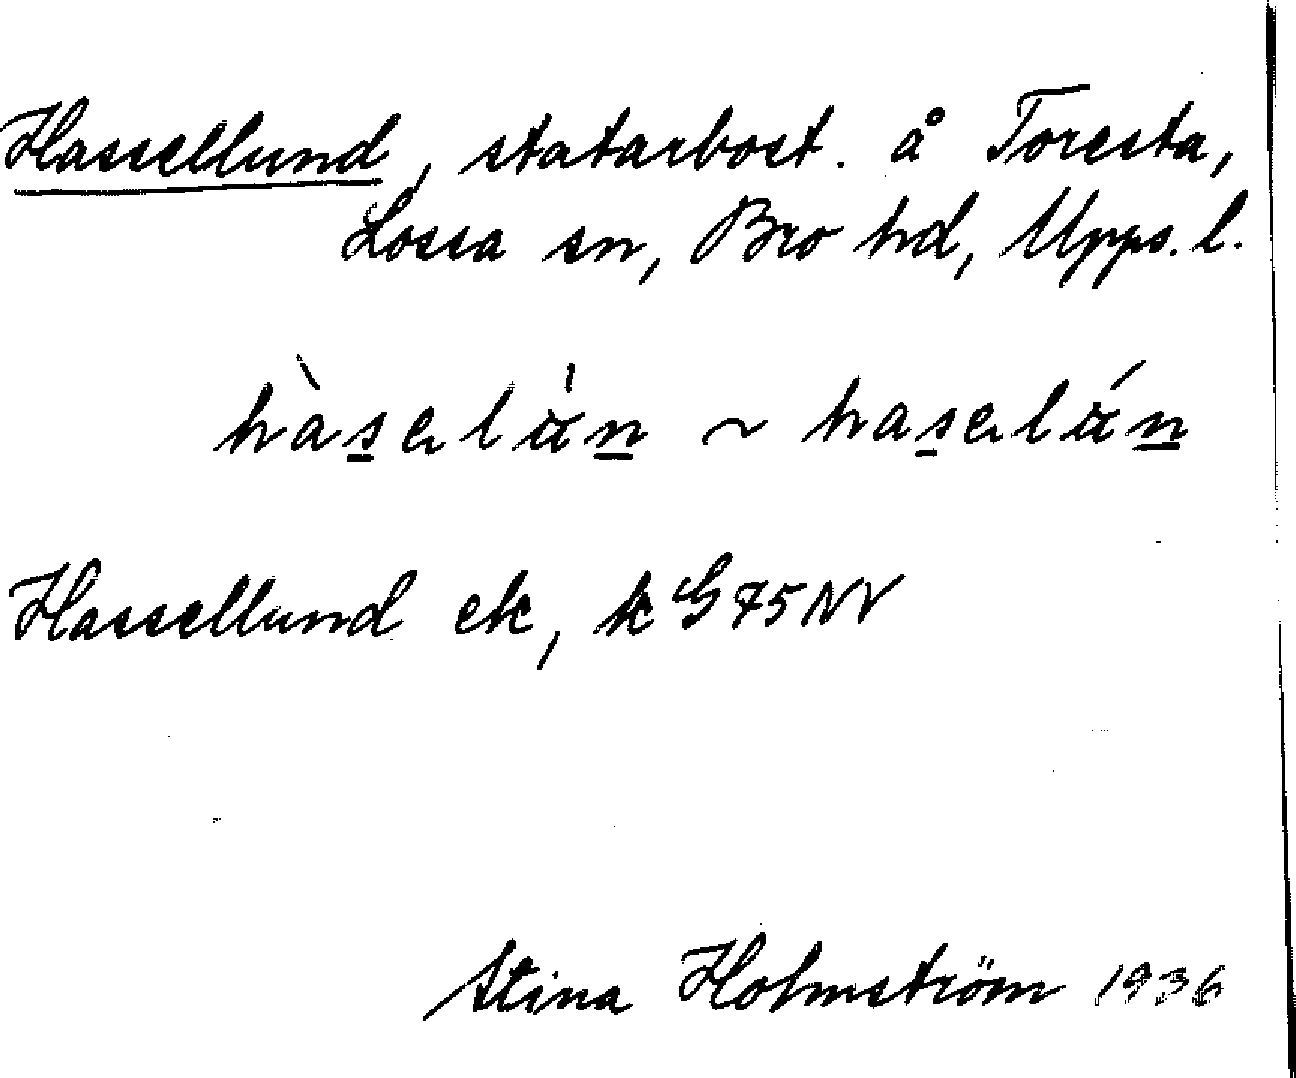 Hassellund, statarbost. å Toresta,
Lossa sn, Bro hd, Upps. l.
hàselän ~ haselän
Hassellund ek, k G 75 NV
Stina Holmström 1936